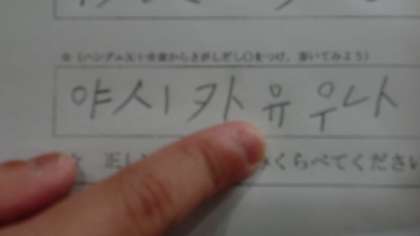 (ハングル五十音表からさがしだし○をつけ、書いてみよう)
야시카 유우나
正し くらべてください